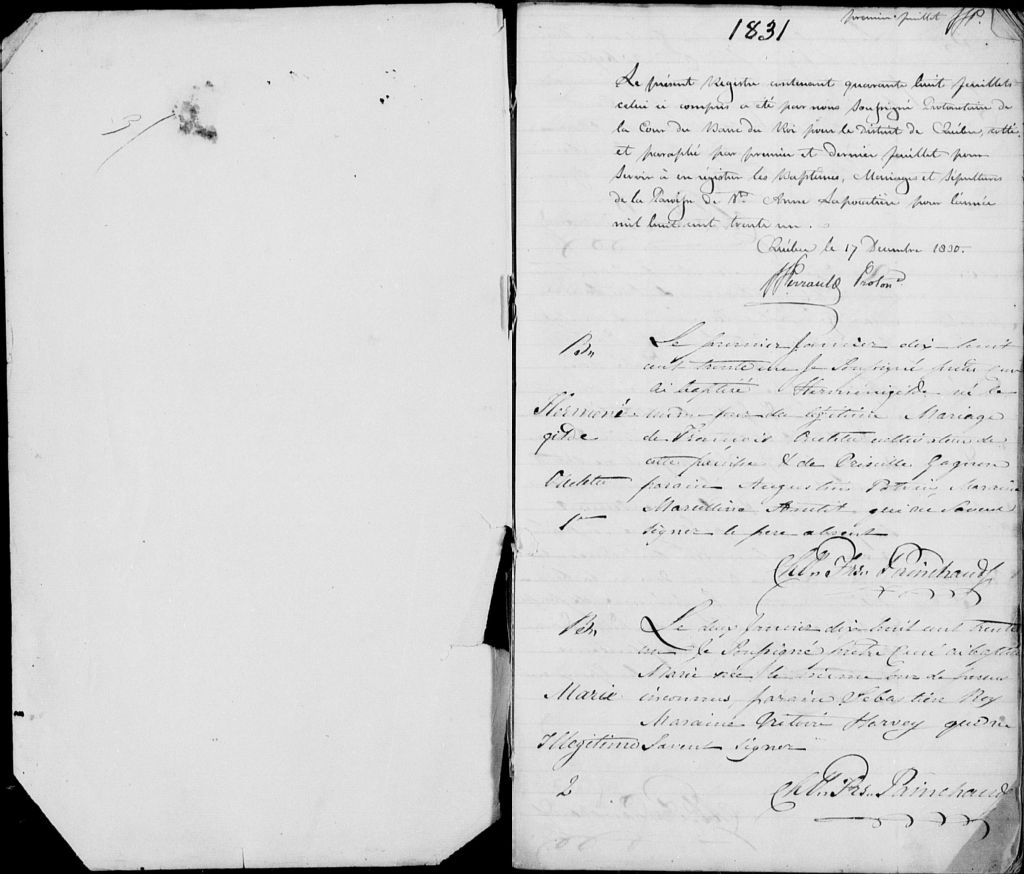 premier feuillet JFP.
1831
Le présent Registre contenant quarante huit feuillets
celui ci compris a été par nous Soussigné Protonotaire de
la Cour du Banc du Roi pour le District de Québec, cotté
et paraphé par premier et dernier feuillet pour
servir à enrégistrer les Baptemes, Mariages et Sépultures
de la Paroisse de Ste Anne Lapocatière pour l'année
mil huit cent trente un.
Québec le 17 Decembre 1830.
JFPerrault Proton.
Bn
Herméné
gilde
Odette
1er
Le premier Janvier dix-huit
cent trente un Je Soussigné prêtre curé
ai baptisé Herménégilde né le
même jour du légitime Mariage
de François Odette cultivateur de
cette paroisse & de Priscille Gagnon
parain Augustin Potvin, Maraine
Marcelline qui ne Savent
signer le pere absent
Chs Frs Painchaud
Bn
Marie
Illegitime
2
Le deux Janvier dix huit cent trente
un Je Soussigné prêtre Curé ai baptisé
Marie née le même jour de parens
inconnus, parain Sebastien Roy
Maraine Victoire Harvey qui ne
Savent Signer
Chs Frs Painchaud